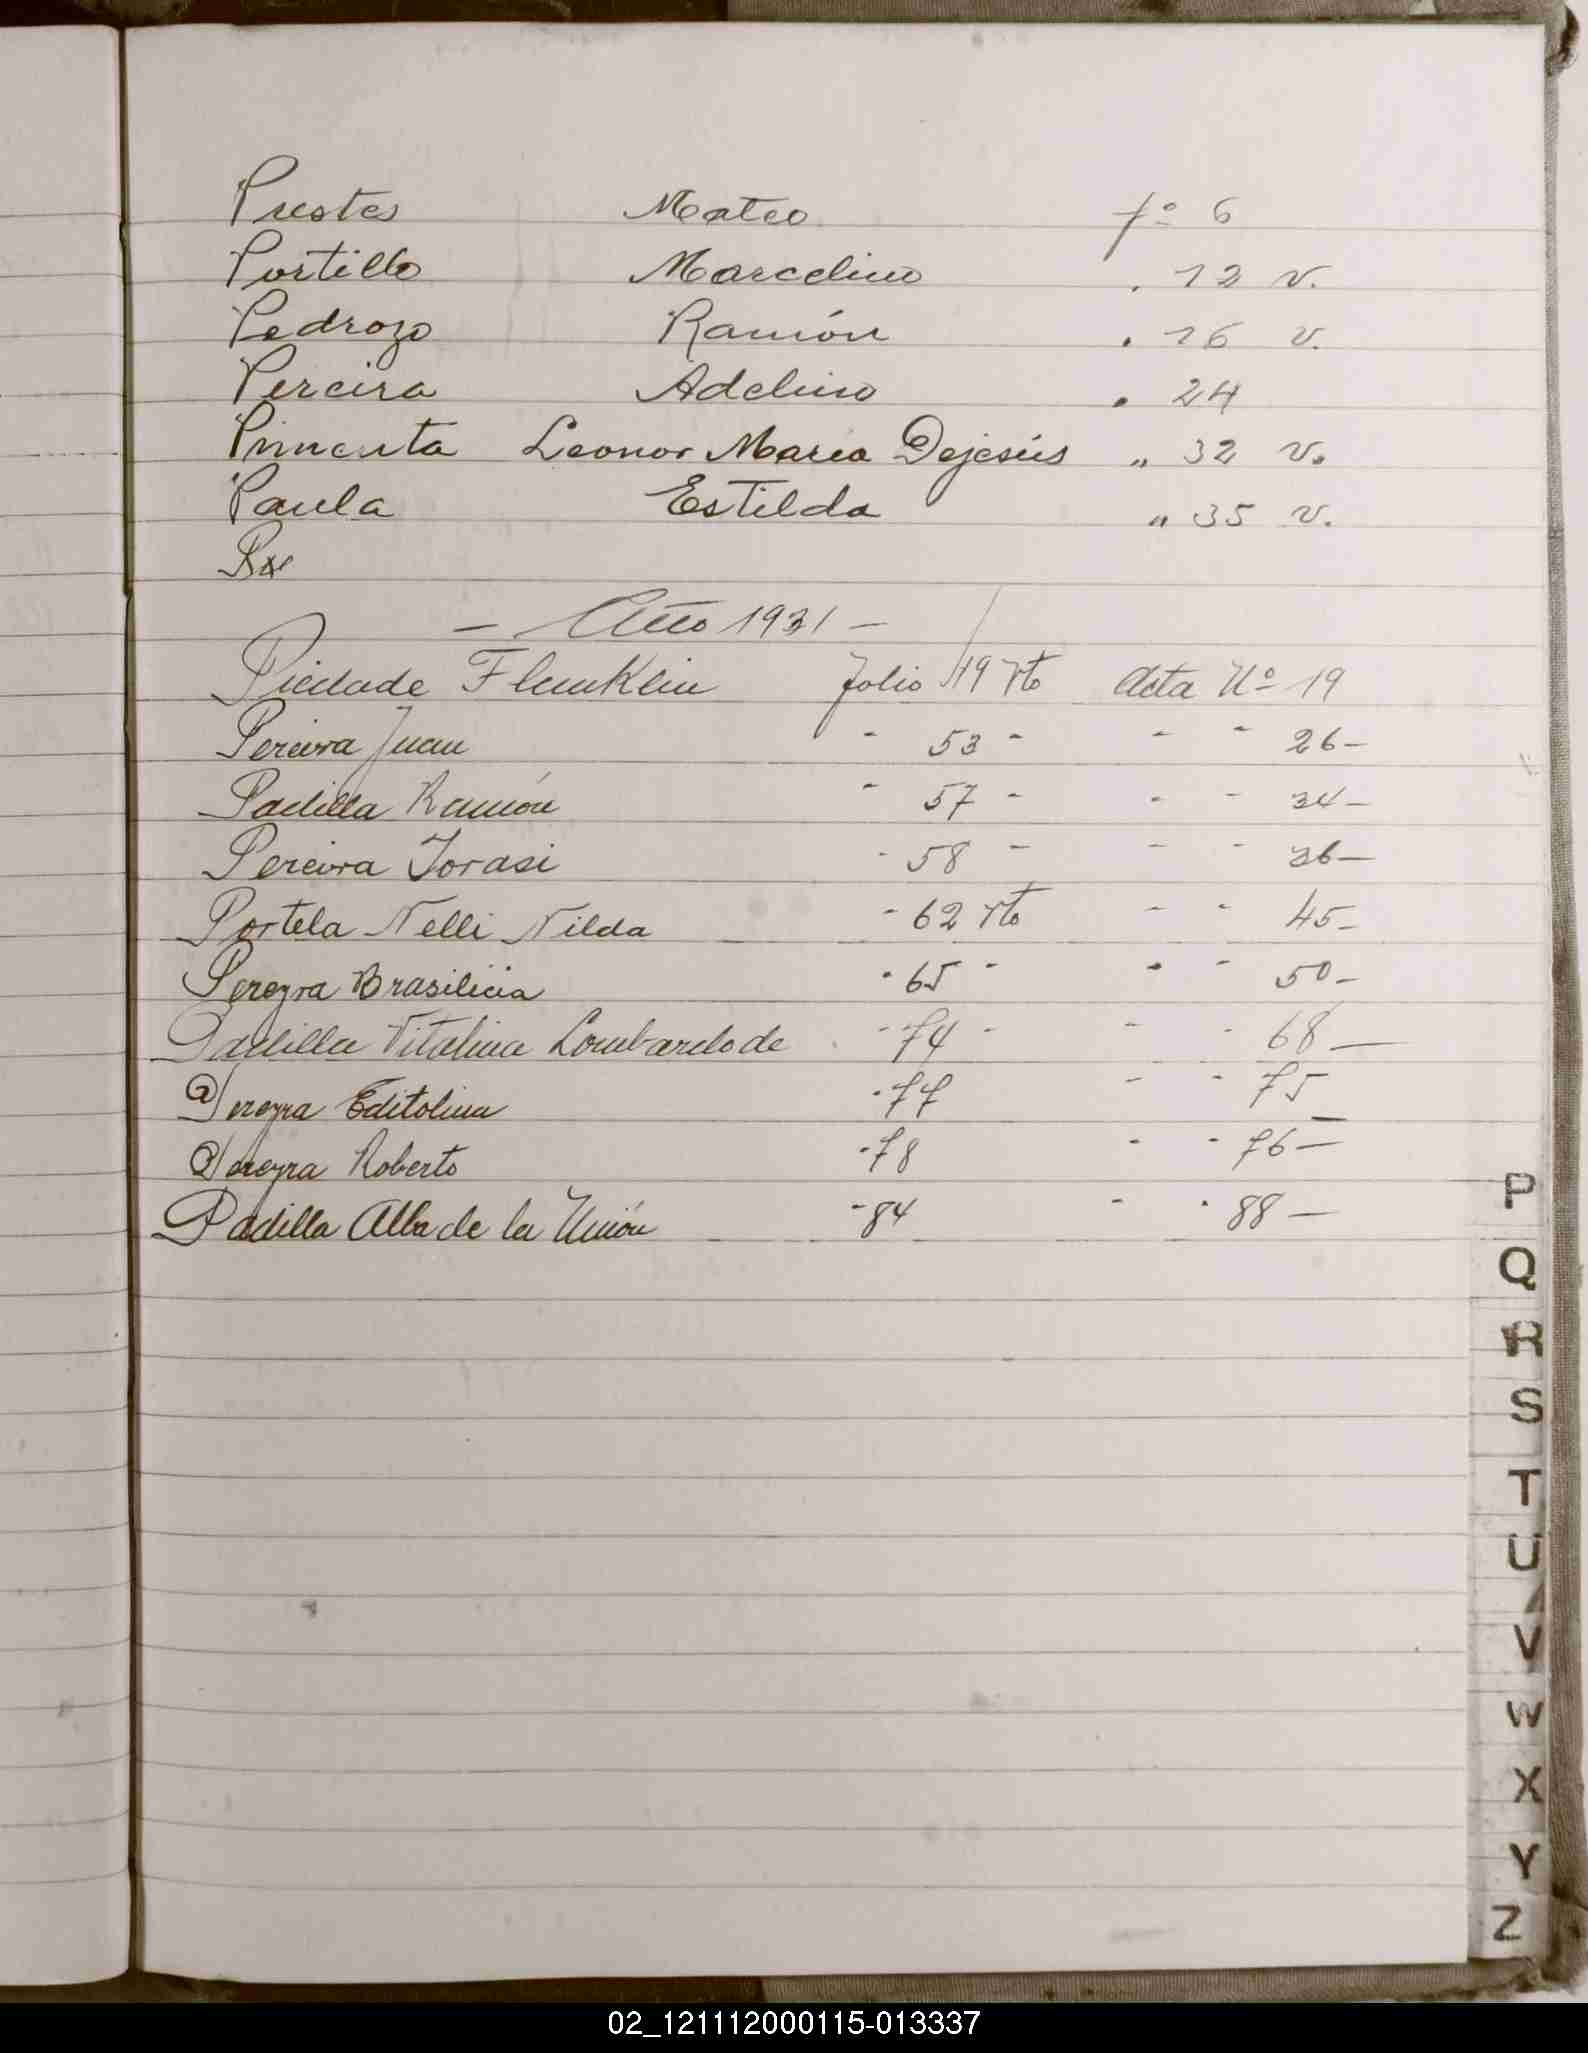 Prestes Mateo fº 6
Portillo Marcelino . 12 v.
Pedrozo Ramón . 16 v.
Pereira Adelino . 24
Pimenta Leonor Maria Dejesús " 32 v.
Paula Estilda " 35 v.
- Año 1931 -
Piedade Flenklin folio 19 vto Acta Nº 19
Pereira Juan - 53 - - - 26-
Padilla Ramón - 57 - - - 34-
Pereira Jorasi - 58 - - - 36-
Portela Nelli Nilda - 62 vto - - 45-
Pereyra Brasilicia - 65 - - - 50-
Padilla Vitalina Lombardo de - 74 - - - 68-
Pereyra Editolina - 77 - - 75
Pereyra Roberto - 78 - - 76-
Padilla Alba de la Unión - 84 - - 88-
P
Q
R
S
T
U
V
W
X
Y
Z
02_121112000115-013337